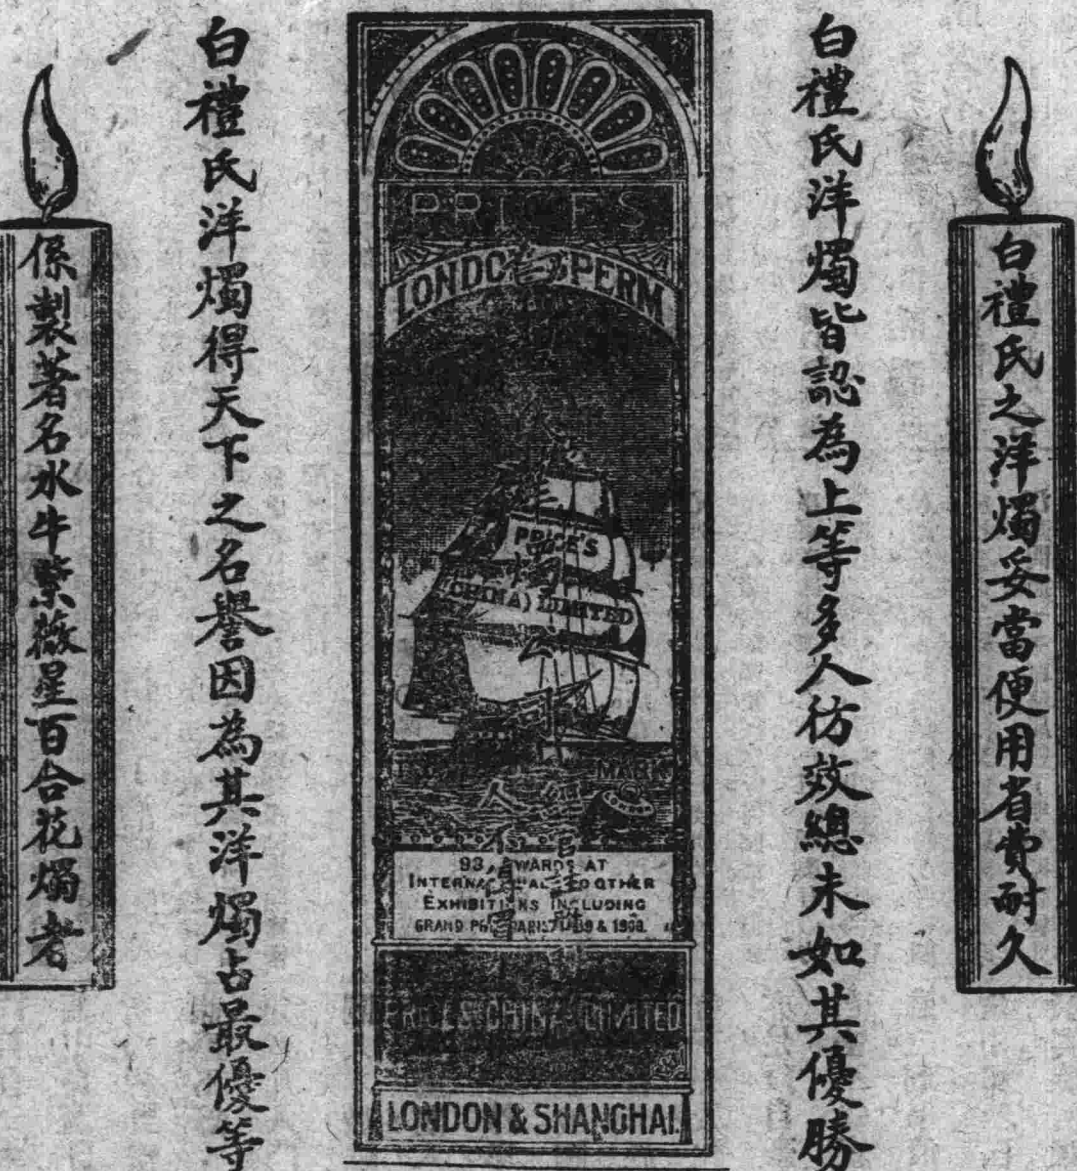 白禮氏之洋燭妥當便用省費耐久
白禮氏洋燭皆認為上等多人彷效總未如其優勝
PRICE'S
LONDON SPERM
PRICE'S
(CHINA) LIMITED
MARK
93 AWARDS AT
INTERNATIONAL AND OTHER
EXHIBITIONS INCLUDING
PRICE'S CHINA LIMITED
LONDON & SHANGHAI.
白禮氏洋燭得天下之名譽因為其洋燭占最優等
係製著名水牛紫薇星百合花燭者